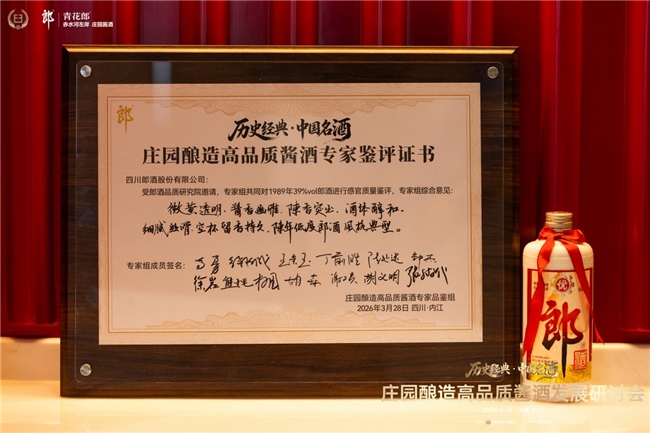 郎 青花郎
赤水河左岸 庄园酱酒
郎
历史经典·中国名酒
庄园酿造高品质酱酒专家鉴评证书
四川郎酒股份有限公司：
受郎酒品质研究院邀请，专家组共同对1989年39%vol郎酒进行感官质量鉴评，专家组综合意见：
微黄透明、酱香幽雅、陈香突出、酒体醇和、
细腻丝滑、空杯留香持久、陈年低度郎酒风格典型。
专家组成员签名：
庄园酿造高品质酱酒专家品鉴组
2026年3月28日 四川·内江
优
郎
酒
历史经典·中国名酒
庄园酿造高品质酱酒发展研讨会